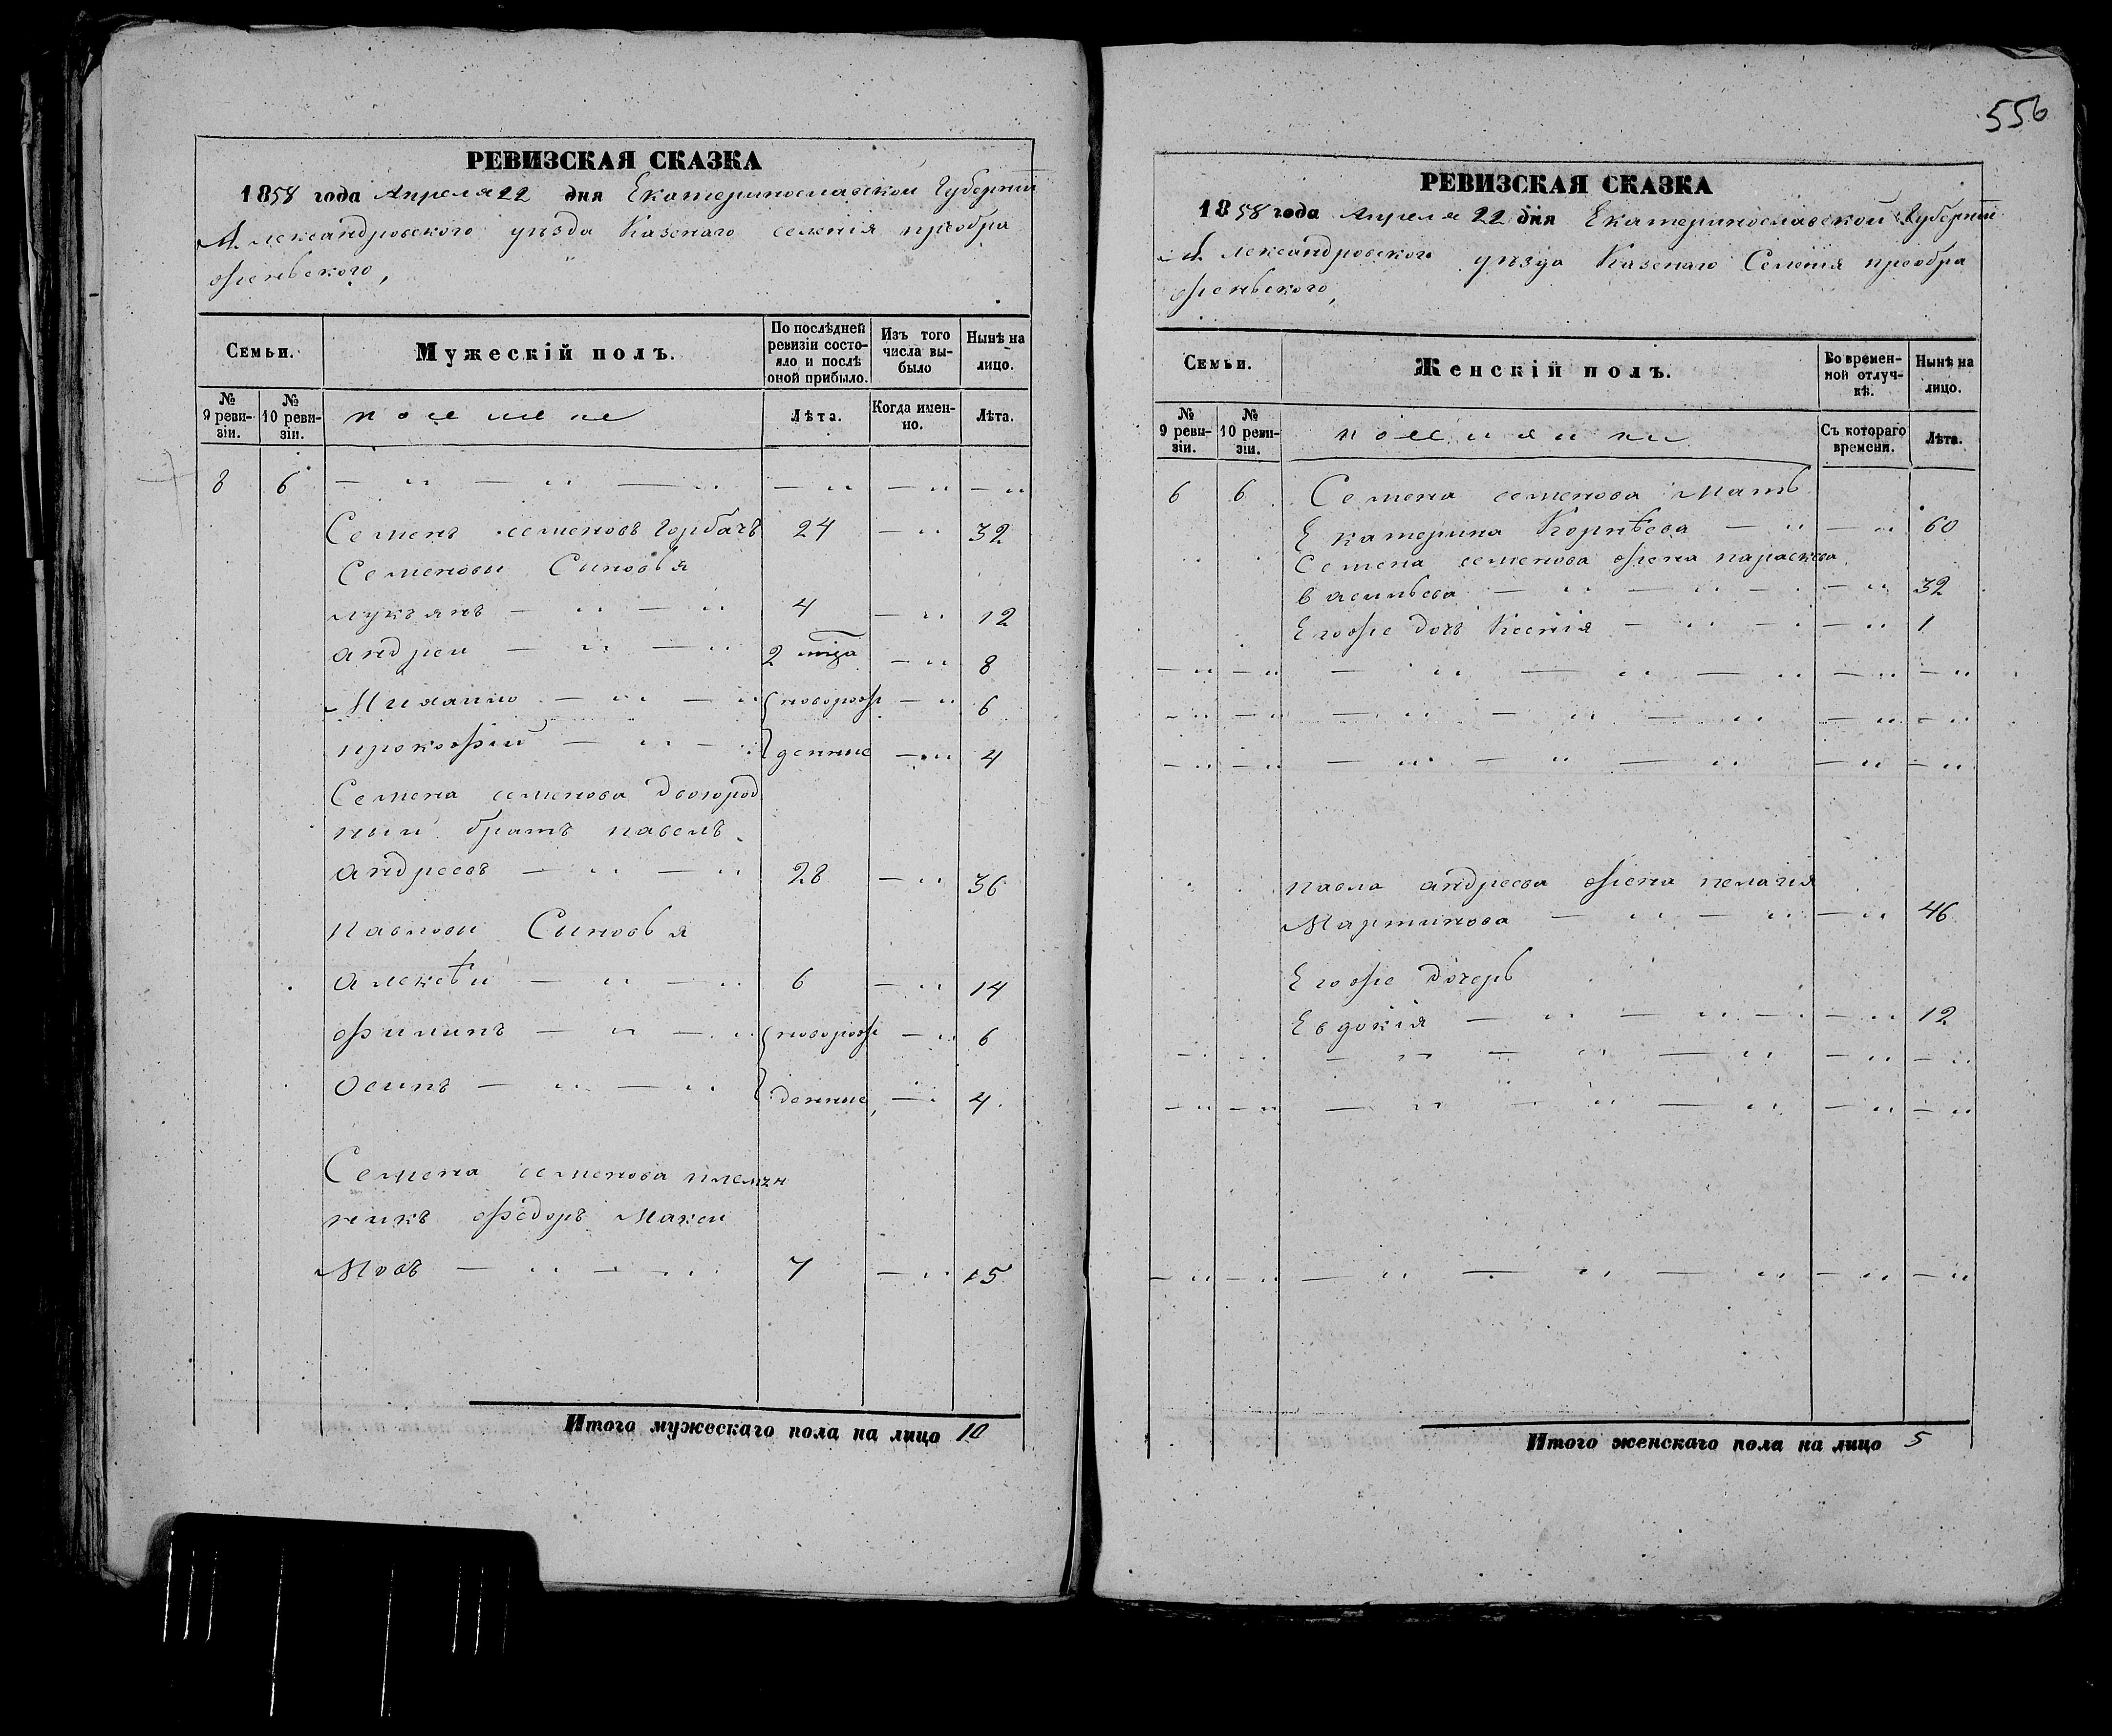 РЕВИЗСКАЯ СКАЗКА
1858 года Апреля 22 дня Екатеринославской Губернїи
Александровского уѣзда Казенаго селенія преобра
женьского,
Семьи.
Мужескій полъ.
По послѣдней ревизіи состояло и послѣ оной прибыло.
Изъ того числа выбыло
Нынѣ на лицо.
№ 9 ревизіи.
№ 10 ревизіи.
Лѣта.
Когда именно.
Лѣта.
8 6 — " — " — " — " — " — "
Семенъ семеновъ Горбачъ 24 — " 32
Семенови Синовья
лукъянъ — " — " 4 — " 12
андреи — " — " 2 мца — " 8
Михаило — " — " новорож — " 6
прокофій — " — " денние — " 4
Семена семенова двоюрод
ний братъ павелъ
андреевъ — " — " 28 — " 36
Павлови Синовья
алексѣй — " — " 6 — " 14
филипъ — " — " новорож — " 6
осипъ — " — " денние, — " 4
Семена семенова племян
никъ федоръ Макси
Мовъ — " — " 7 — " 15
Итого мужескаго пола на лицо 10
556
РЕВИЗСКАЯ СКАЗКА
1858 года Апреля 22 дня Екатеринославской Губерніи
Александровского уѣзда Казенаго Селенія преобра
женьского,
Семьи.
Женскій полъ.
Во временной отлучкѣ.
Нынѣ на лицо.
№ 9 ревизіи.
№ 10 ревизіи.
Съ котораго времени.
Лѣта.
6 6 Семена семенова Мать
Екатерина Корнѣева — " — " 60
Семена семенова жена параскева
васильева — " — " — " 32
Егоже дочь Ксенія — " — " 1
— " — " — " — " — " — " — "
— " — " — " — " — " — " — "
— " — " — " — " — " — " — "
павла андреева жена пелагія
Мартинова — " — " — " 46
Егоже дочерь
Евдокія — " — " — " 12
— " — " — " — " — " — " — "
— " — " — " — " — " — " — "
— " — " — " — " — " — " — "
Итого женскаго пола на лицо 5